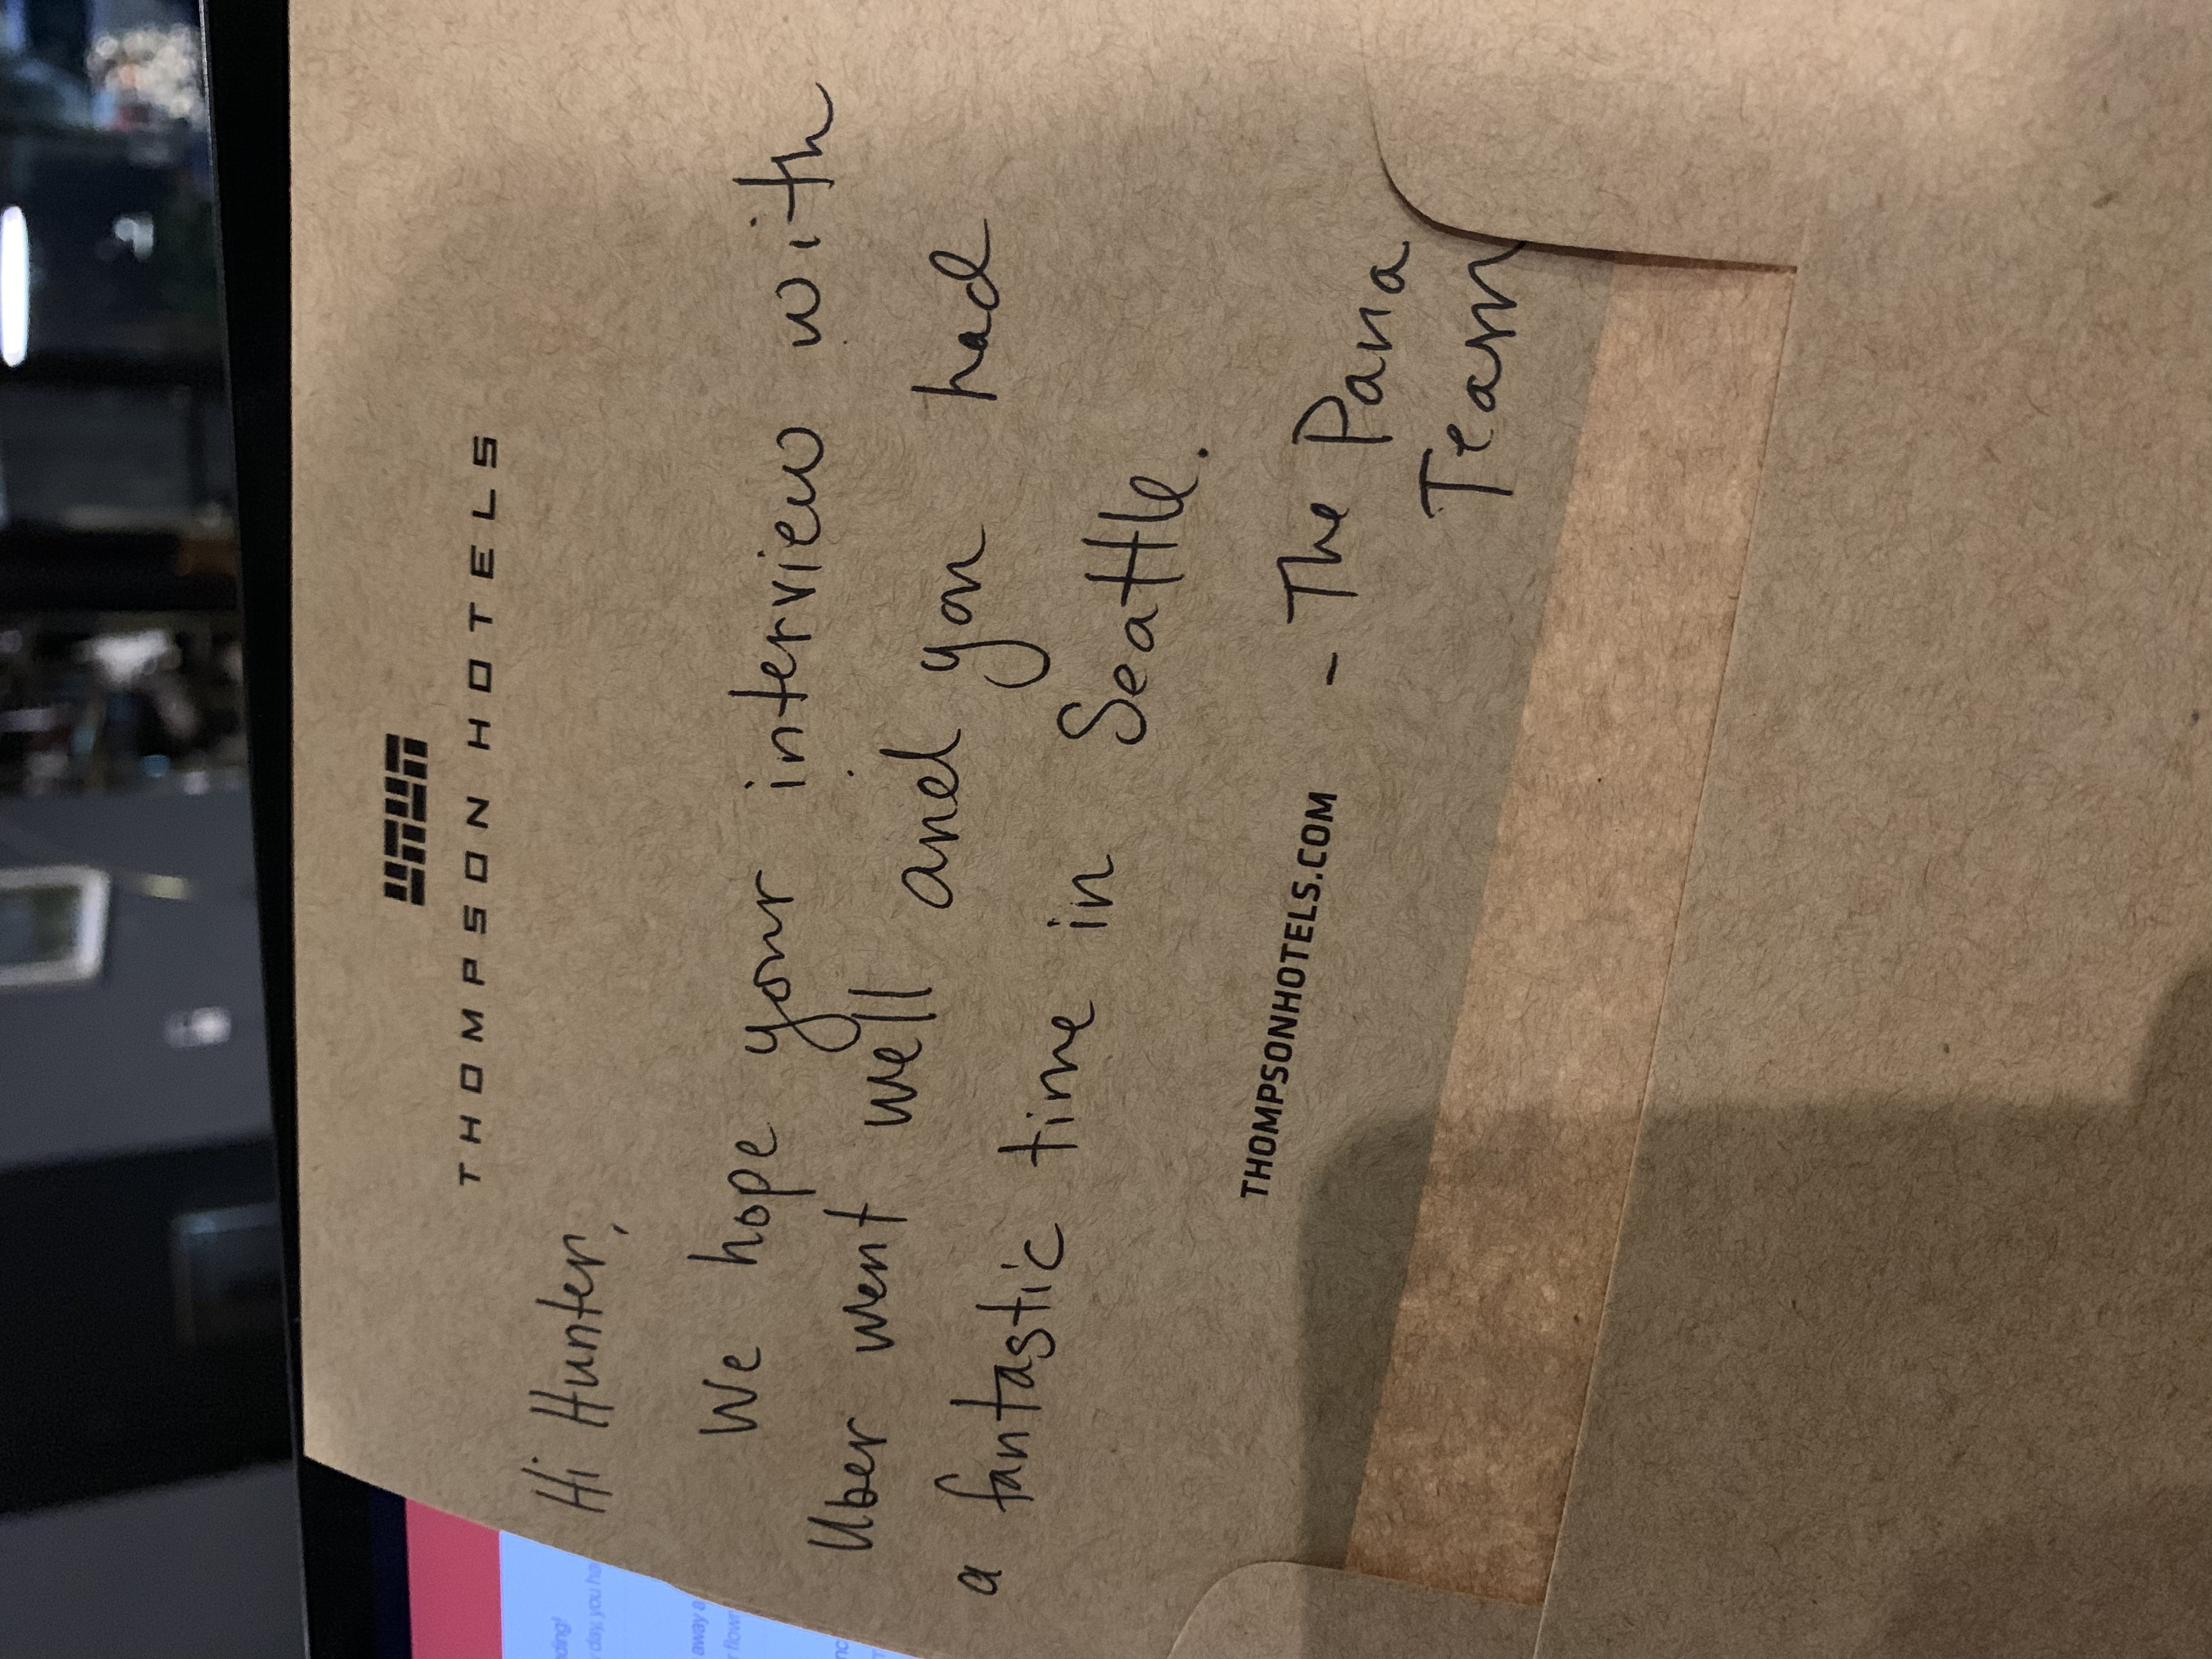 THOMPSON HOTELS
Hi Hunter,
We hope your interview with
Uber went well and you had
a fantastic time in Seattle.
THOMPSONHOTELS.COM
- The Pana
Team
day, you ha
away a